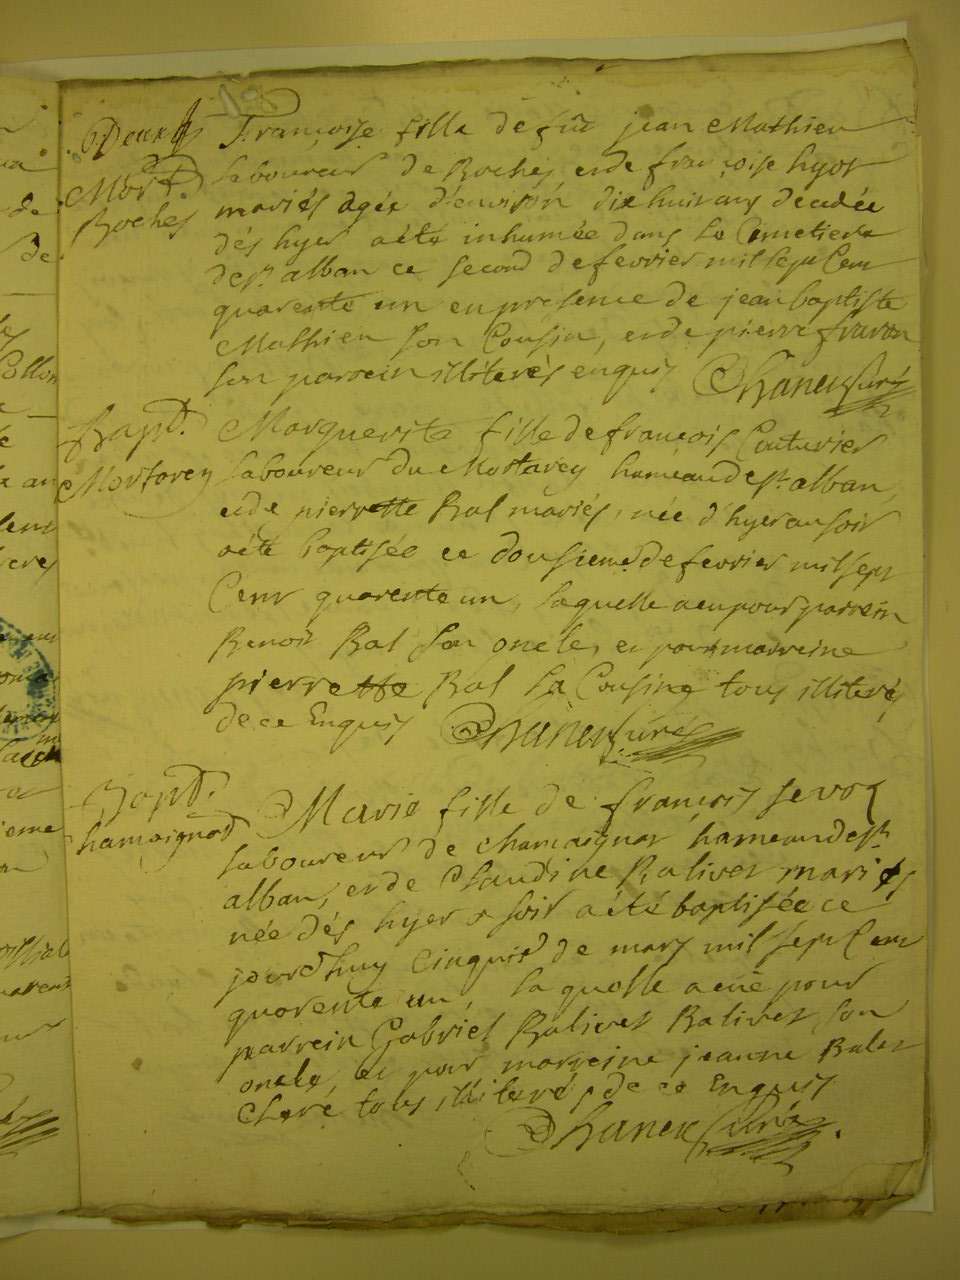 Mort.
Roches
françoise fille de fût jean Mathieu
laboureur de Roches et de françoise hyot
mariés agée d'environ dix huit ans decedée
dés hyer aété inhumée dans le Cimetiere
de st alban ce second de fevrier mil sept Cent
quarente un en presence de jean baptiste
Mathieu son Cousin, et de pierre
son parrein illiterés enquis Curé
Bapt.
Mortarey
Marguerite fille de françois Couturier
laboureur du Mortarey hameau de st alban
et de pierrette Ral mariés, née d'hyer au soir
aété baptisée ce dousieme de fevrier mil sept
Cent quarente un, laquelle a eu pour parrein
Benoit Ral son oncle, et pour marreine
pierrette Ral sa Cousine tous illiterés
de ce Enquis Curé
Bapt.
Marie fille de françois
laboureur de chamaignot hameau de st
alban, et de Claudine Ralivet mariés
née dés hyer o soir aété baptisée ce
jourdhuy Cinquie de mars mil sept Cent
quarente un, la quelle a eüe pour
parrein Gabriel Ralivet Ralivet son
oncle, et pour marreine jeanne
tous illiterés de ce Enquis
Curé